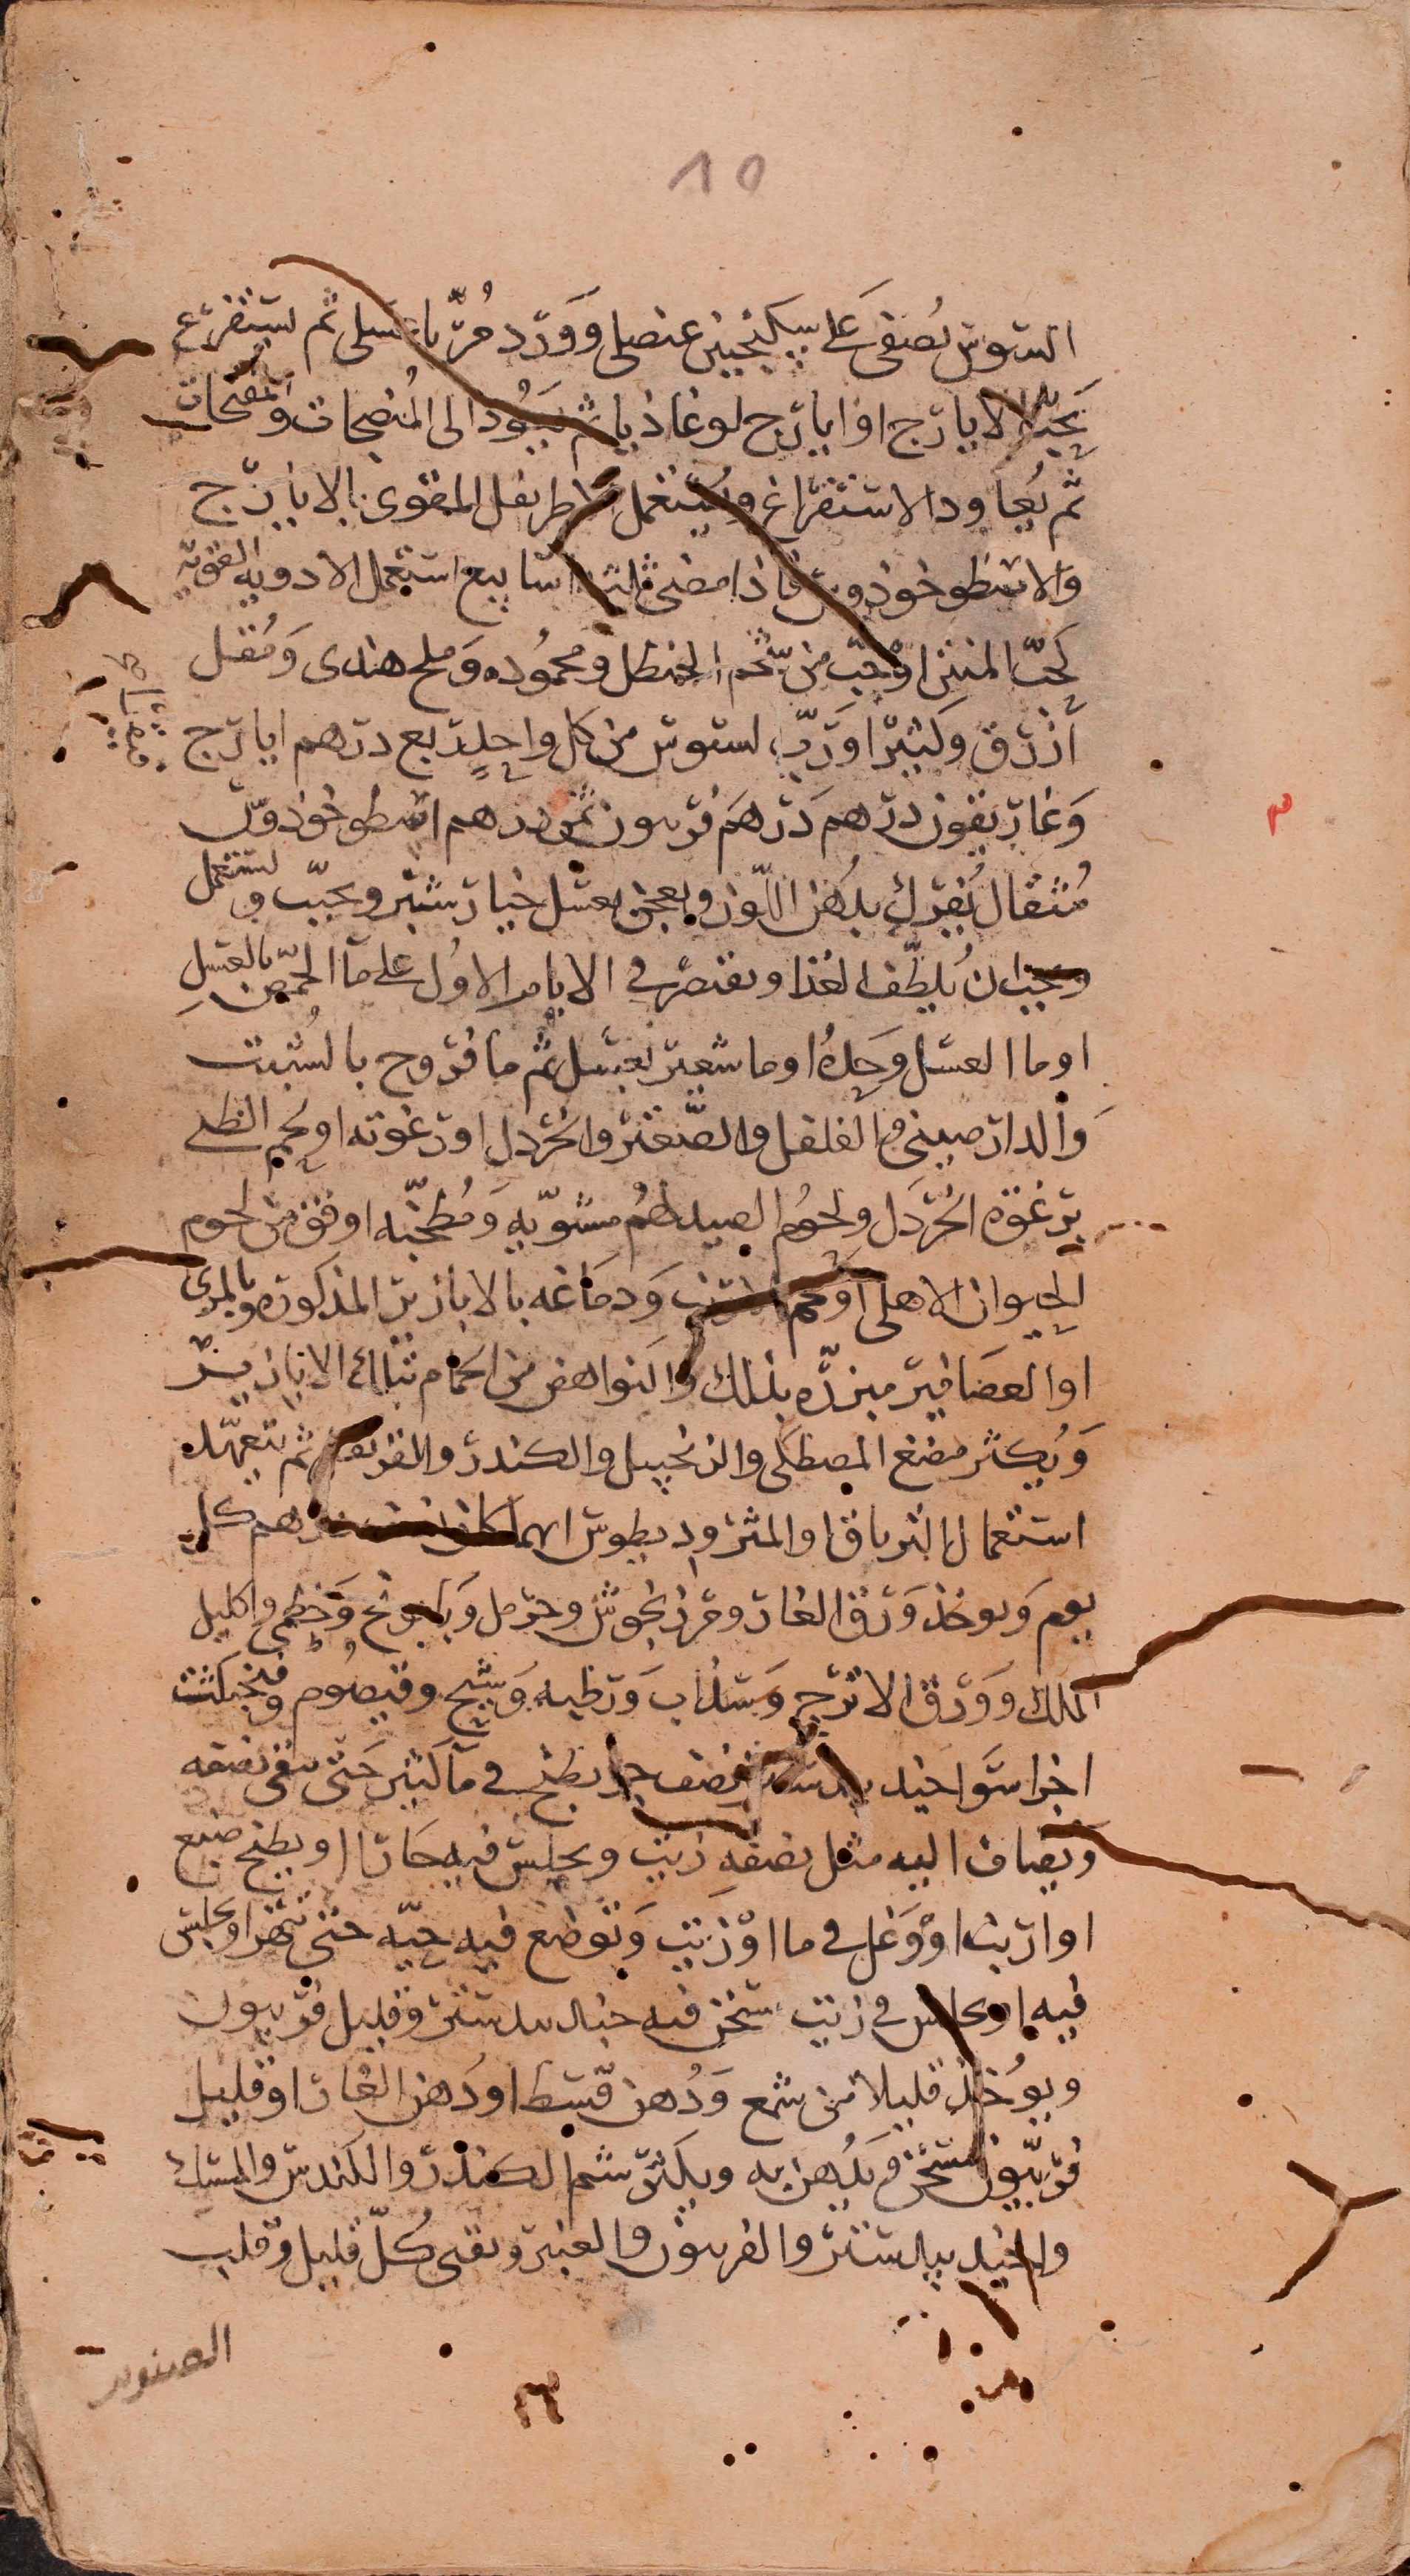 10
السوس يصفى على سكنجبين عنصلى وورد مربا عسلى ثم يستفرغ
بحب الايارج او ايارج لوغاذيا ثم يعود الى المنضجات والمفتحات
ثم يعاود الاستفراغ ويستعمل الاطريفل المقوى بالايارج
والاسطوخوذوس فاذا مضى ثلثة اسابيع استعمل الادويه القويه
كحب المنتن او حب من شحم الحنظل ومحموده وملح هندى ومقل
ازرق وكثيرا ورب السوس من كل واحد ربع درهم ايارج
وغاريقون درهم درهم فربيون ثمن درهم اسطوخوذوس
مثقال يفرك بدهن اللوز ويعجن بعسل خيارشنبر ويحبب ويستعمل
ويجب ان يلطف الغذا ويقتصر فى الايام الاول على ما الحمص بالعسل
او ما العسل وحده او ما شعير بعسل ثم ما فروج بالشبت
والدارصينى والفلفل والصعتر والخردل او رغوته او لحم الظبى
برغوة الخردل ولحوم الصيد لهم مشويه ومطجنه اوفق من لحوم
الحيوان الاهلى او لحم الارنب ودماغه بالابازير المذكوره وبالمرى
او العصافير مبزره بذلك والنواهض من الحمام بتلك الابازير
ويكثر مضغ المصطكى والزنجبيل والكندر والقرنفل ثم يتعهده
استعمال الترياق او المثروديطوس ايهما كان نصف درهم كل
يوم ويوخذ ورق الغار ومرزنجوش وحرمل وبابونج وخطمى واكليل
الملك وورق الاترج وسداب ورطبه وشيح وقيصوم وفنجنكشت
اجزا سوا جندبيدستر نصف جز يطبخ فى ما كثير حتى يبقى نصفه
ويضاف اليه مثل نصفه زيت ويجلس فيه حارا او يطبخ ضبع
او ارنب او وعل فى ما او زيت وتوضع فيه حيه حتى تتهرا ويجلس
فيه او يجلس فى زيت سخن فيه جندبيدستر وقليل فربيون
ويوخذ قليلا من شمع ودهن قسط او دهن الغار او قليل
فربيون يسخن ويدهن به ويكثر شم الكندر والكندس والمسك
والجندبيدستر والفربيون والعنبر ويقى كل قليل وقلب
الصنوبر